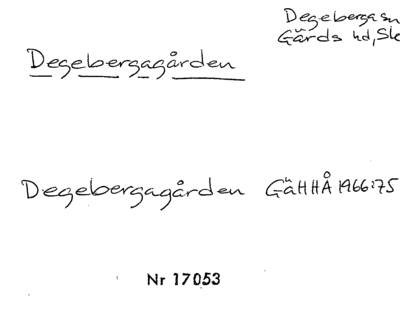 Degeberga sn
Gärds hd, Sk
Degebergagården
Degebergagården GäHHÅ 1966:75
Nr 17053